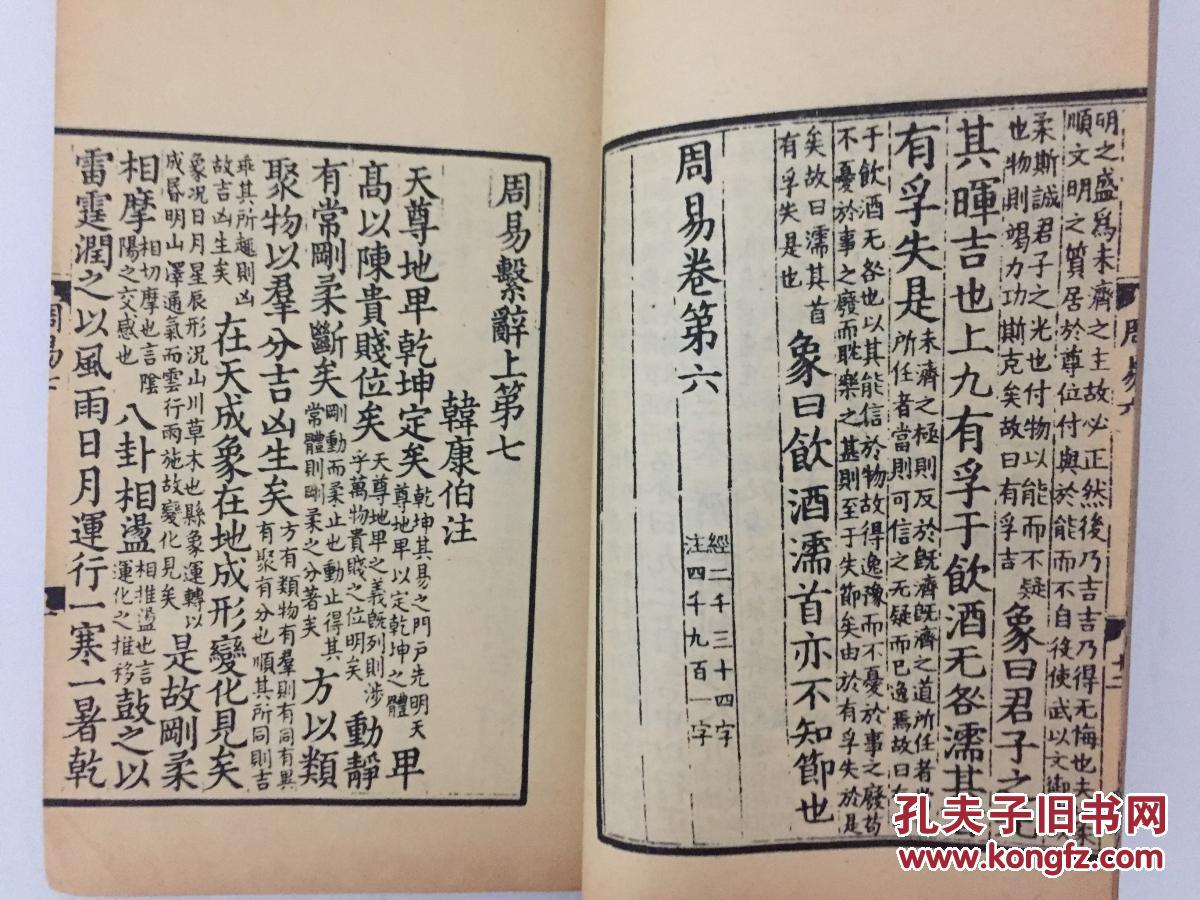 明之盛爲未濟之主故必正然後乃吉吉乃得无悔也夫以
順文明之質居於尊位付與於能而不自役使武以文御
柔斯誠君子之光也付物以能而不疑
也物則竭力功斯克矣故曰有孚吉
象曰君子之光
其暉吉也上九有孚于飲酒无咎濡其首
有孚失是
未濟之極則反於旣濟旣濟之道所任者當
所任者當則可信之无疑而已逸焉故曰有
于飲酒无咎也以其能信於物故得逸豫而不憂於事之廢苟
不憂於事之廢而耽樂之甚則至于失節矣由於有孚失於是
矣故曰濡其首
有孚失是也
象曰飲酒濡首亦不知節也
周易卷第六
經二千三十四字
注四千九百一字
周易六
十三
周易繫辭上第七
韓康伯注
天尊地卑乾坤定矣
乾坤其易之門戶先明天
尊地卑以定乾坤之體
卑
高以陳貴賤位矣
天尊地卑之義旣列則涉
乎萬物貴賤之位明矣
動靜
有常剛柔斷矣
剛動而柔止也動止得其
常體則剛柔之分著矣
方以類
聚物以羣分吉凶生矣
方有類物有羣則有同有異
有聚有分也順其所同則吉
乖其所趣則凶
故吉凶生矣
在天成象在地成形變化見矣
象况日月星辰形况山川草木也縣象運轉以
成昏明山澤通氣而雲行雨施故變化見矣
是故剛柔
相摩
相切摩也言陰
陽之交感也
八卦相盪
相推盪也言
運化之推移
鼓之以
雷霆潤之以風雨日月運行一寒一暑乾
周易七
孔夫子旧书网
www.kongfz.com